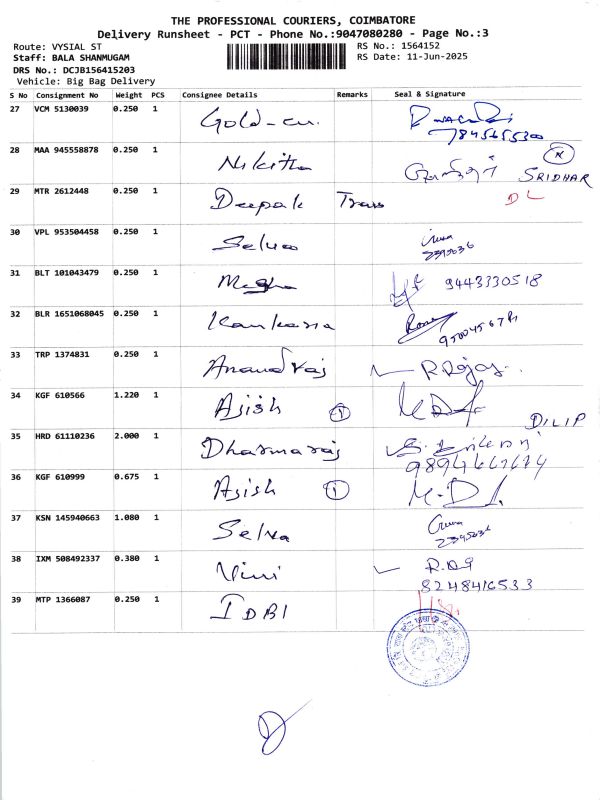 THE PROFESSIONAL COURIERS, COIMBATORE
Delivery Runsheet - PCT - Phone No.:9047080280 - Page No.:3
Route: VYSIAL ST
RS No.: 1564152
Staff: BALA SHANMUGAM
RS Date: 11-Jun-2025
DRS No.: DCJB156415203
Vehicle: Big Bag Delivery
S No Consignment No Weight PCS Consignee Details Remarks Seal & Signature
27 VCM 5130039 0.250 1 Gold-
28 MAA 945558878 0.250 1 Nikitha SRIDHAR
29 MTR 2612448 0.250 1 Deepak Trans DL
30 VPL 953504458 0.250 1 Selva
2395036
31 BLT 101043479 0.250 1 Megha 9443330518
32 BLR 1651068045 0.250 1 Kankaria
33 TRP 1374831 0.250 1 Anandraj
34 KGF 610566 1.220 1 Asish 1 DILIP
35 HRD 61110236 2.000 1 Dharmaraj
36 KGF 610999 0.675 1 Asish 1 M.D
37 KSN 145940663 1.080 1 Selva
2395036
38 IXM 508492337 0.380 1 Vini
8248416533
39 MTP 1366087 0.250 1 IDBI